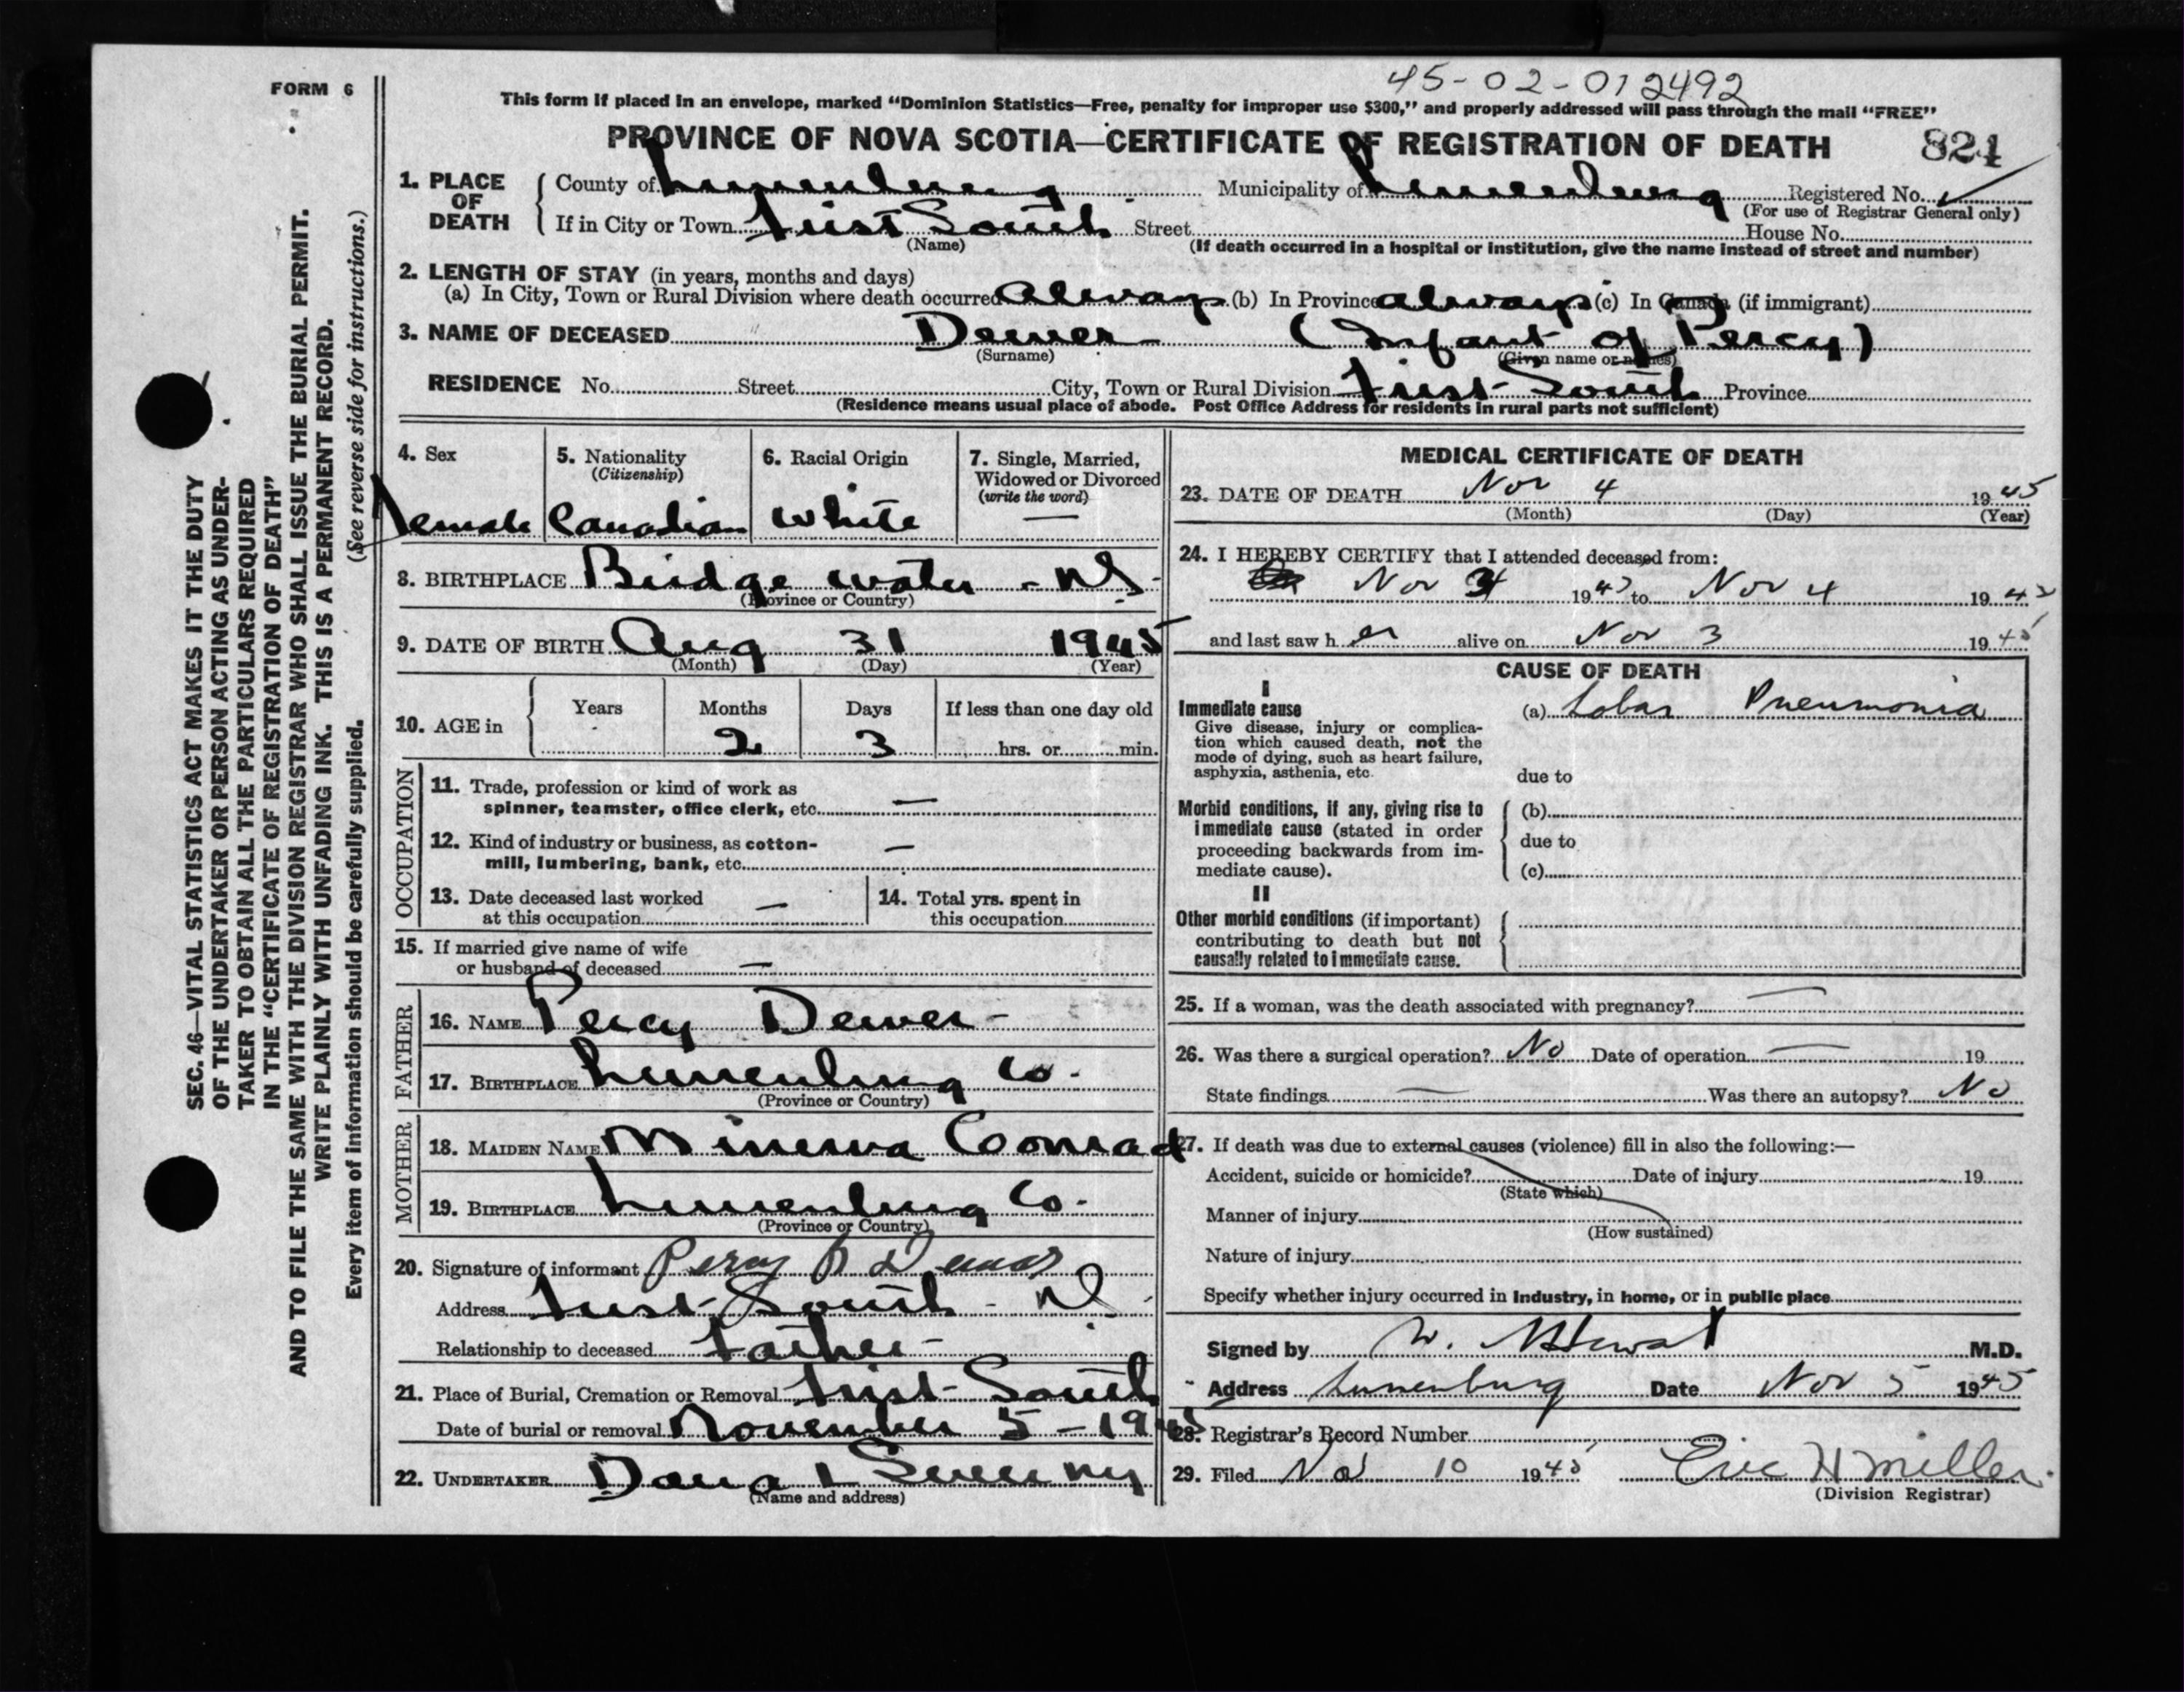 45-02-012492
FORM 6
This form if placed in an envelope, marked “Dominion Statistics—Free, penalty for improper use $300,” and properly addressed will pass through the mail “FREE”
PROVINCE OF NOVA SCOTIA—CERTIFICATE OF REGISTRATION OF DEATH 821
1. PLACE OF DEATH County of Lunenburg Municipality of Lunenburg Registered No.
(For use of Registrar General only)
If in City or Town First South Street House No.
(Name) (If death occurred in a hospital or institution, give the name instead of street and number)
2. LENGTH OF STAY (in years, months and days)
(a) In City, Town or Rural Division where death occurred Always (b) In Province always (c) In Canada (if immigrant)
3. NAME OF DECEASED Dewer (Infant of Percy)
(Surname) (Given name or names)
RESIDENCE No. Street City, Town or Rural Division First South Province
(Residence means usual place of abode. Post Office Address for residents in rural parts not sufficient)
4. Sex 5. Nationality 6. Racial Origin 7. Single, Married,
(Citizenship) Widowed or Divorced
(write the word)
Female Canadian White —
8. BIRTHPLACE Bridgewater - NS
(Province or Country)
9. DATE OF BIRTH Aug 31 1945
(Month) (Day) (Year)
10. AGE in Years Months Days If less than one day old
2 3 hrs. or min.
OCCUPATION
11. Trade, profession or kind of work as
spinner, teamster, office clerk, etc. —
12. Kind of industry or business, as cotton-
mill, lumbering, bank, etc. —
13. Date deceased last worked
at this occupation —
14. Total yrs. spent in
this occupation
15. If married give name of wife
or husband of deceased —
FATHER
16. NAME Percy Dewer -
17. BIRTHPLACE Lunenburg Co.
(Province or Country)
MOTHER
18. MAIDEN NAME Minerva Conrad
19. BIRTHPLACE Lunenburg Co.
(Province or Country)
20. Signature of informant Percy
Address First South - NS
Relationship to deceased Father -
21. Place of Burial, Cremation or Removal First South
Date of burial or removal November 5 - 1945
22. UNDERTAKER Dana L Sweeny
(Name and address)
MEDICAL CERTIFICATE OF DEATH
23. DATE OF DEATH Nov 4 1945
(Month) (Day) (Year)
24. I HEREBY CERTIFY that I attended deceased from:
Nov 1945 to Nov 4 1945
and last saw her alive on Nov 3 1945
CAUSE OF DEATH
I
Immediate cause (a) Lobar Pneumonia
Give disease, injury or complica-
tion which caused death, not the
mode of dying, such as heart failure,
asphyxia, asthenia, etc.
due to
Morbid conditions, if any, giving rise to (b)
immediate cause (stated in order
proceeding backwards from im- due to
mediate cause). (c)
II
Other morbid conditions (if important)
contributing to death but not
causally related to immediate cause.
25. If a woman, was the death associated with pregnancy? —
26. Was there a surgical operation? No Date of operation — 19
State findings — Was there an autopsy? No
27. If death was due to external causes (violence) fill in also the following:—
Accident, suicide or homicide? Date of injury 19
(State which)
Manner of injury
(How sustained)
Nature of injury
Specify whether injury occurred in Industry, in home, or in public place
Signed by W. M.D.
Address Lunenburg Date Nov 5 1945
28. Registrar's Record Number
29. Filed Nov 10 1945 Eric H Miller.
(Division Registrar)
SEC. 46—VITAL STATISTICS ACT MAKES IT THE DUTY
OF THE UNDERTAKER OR PERSON ACTING AS UNDER-
TAKER TO OBTAIN ALL THE PARTICULARS REQUIRED
IN THE “CERTIFICATE OF REGISTRATION OF DEATH”
AND TO FILE THE SAME WITH THE DIVISION REGISTRAR WHO SHALL ISSUE THE BURIAL PERMIT.
WRITE PLAINLY WITH UNFADING INK. THIS IS A PERMANENT RECORD.
Every item of information should be carefully supplied. (See reverse side for instructions.)